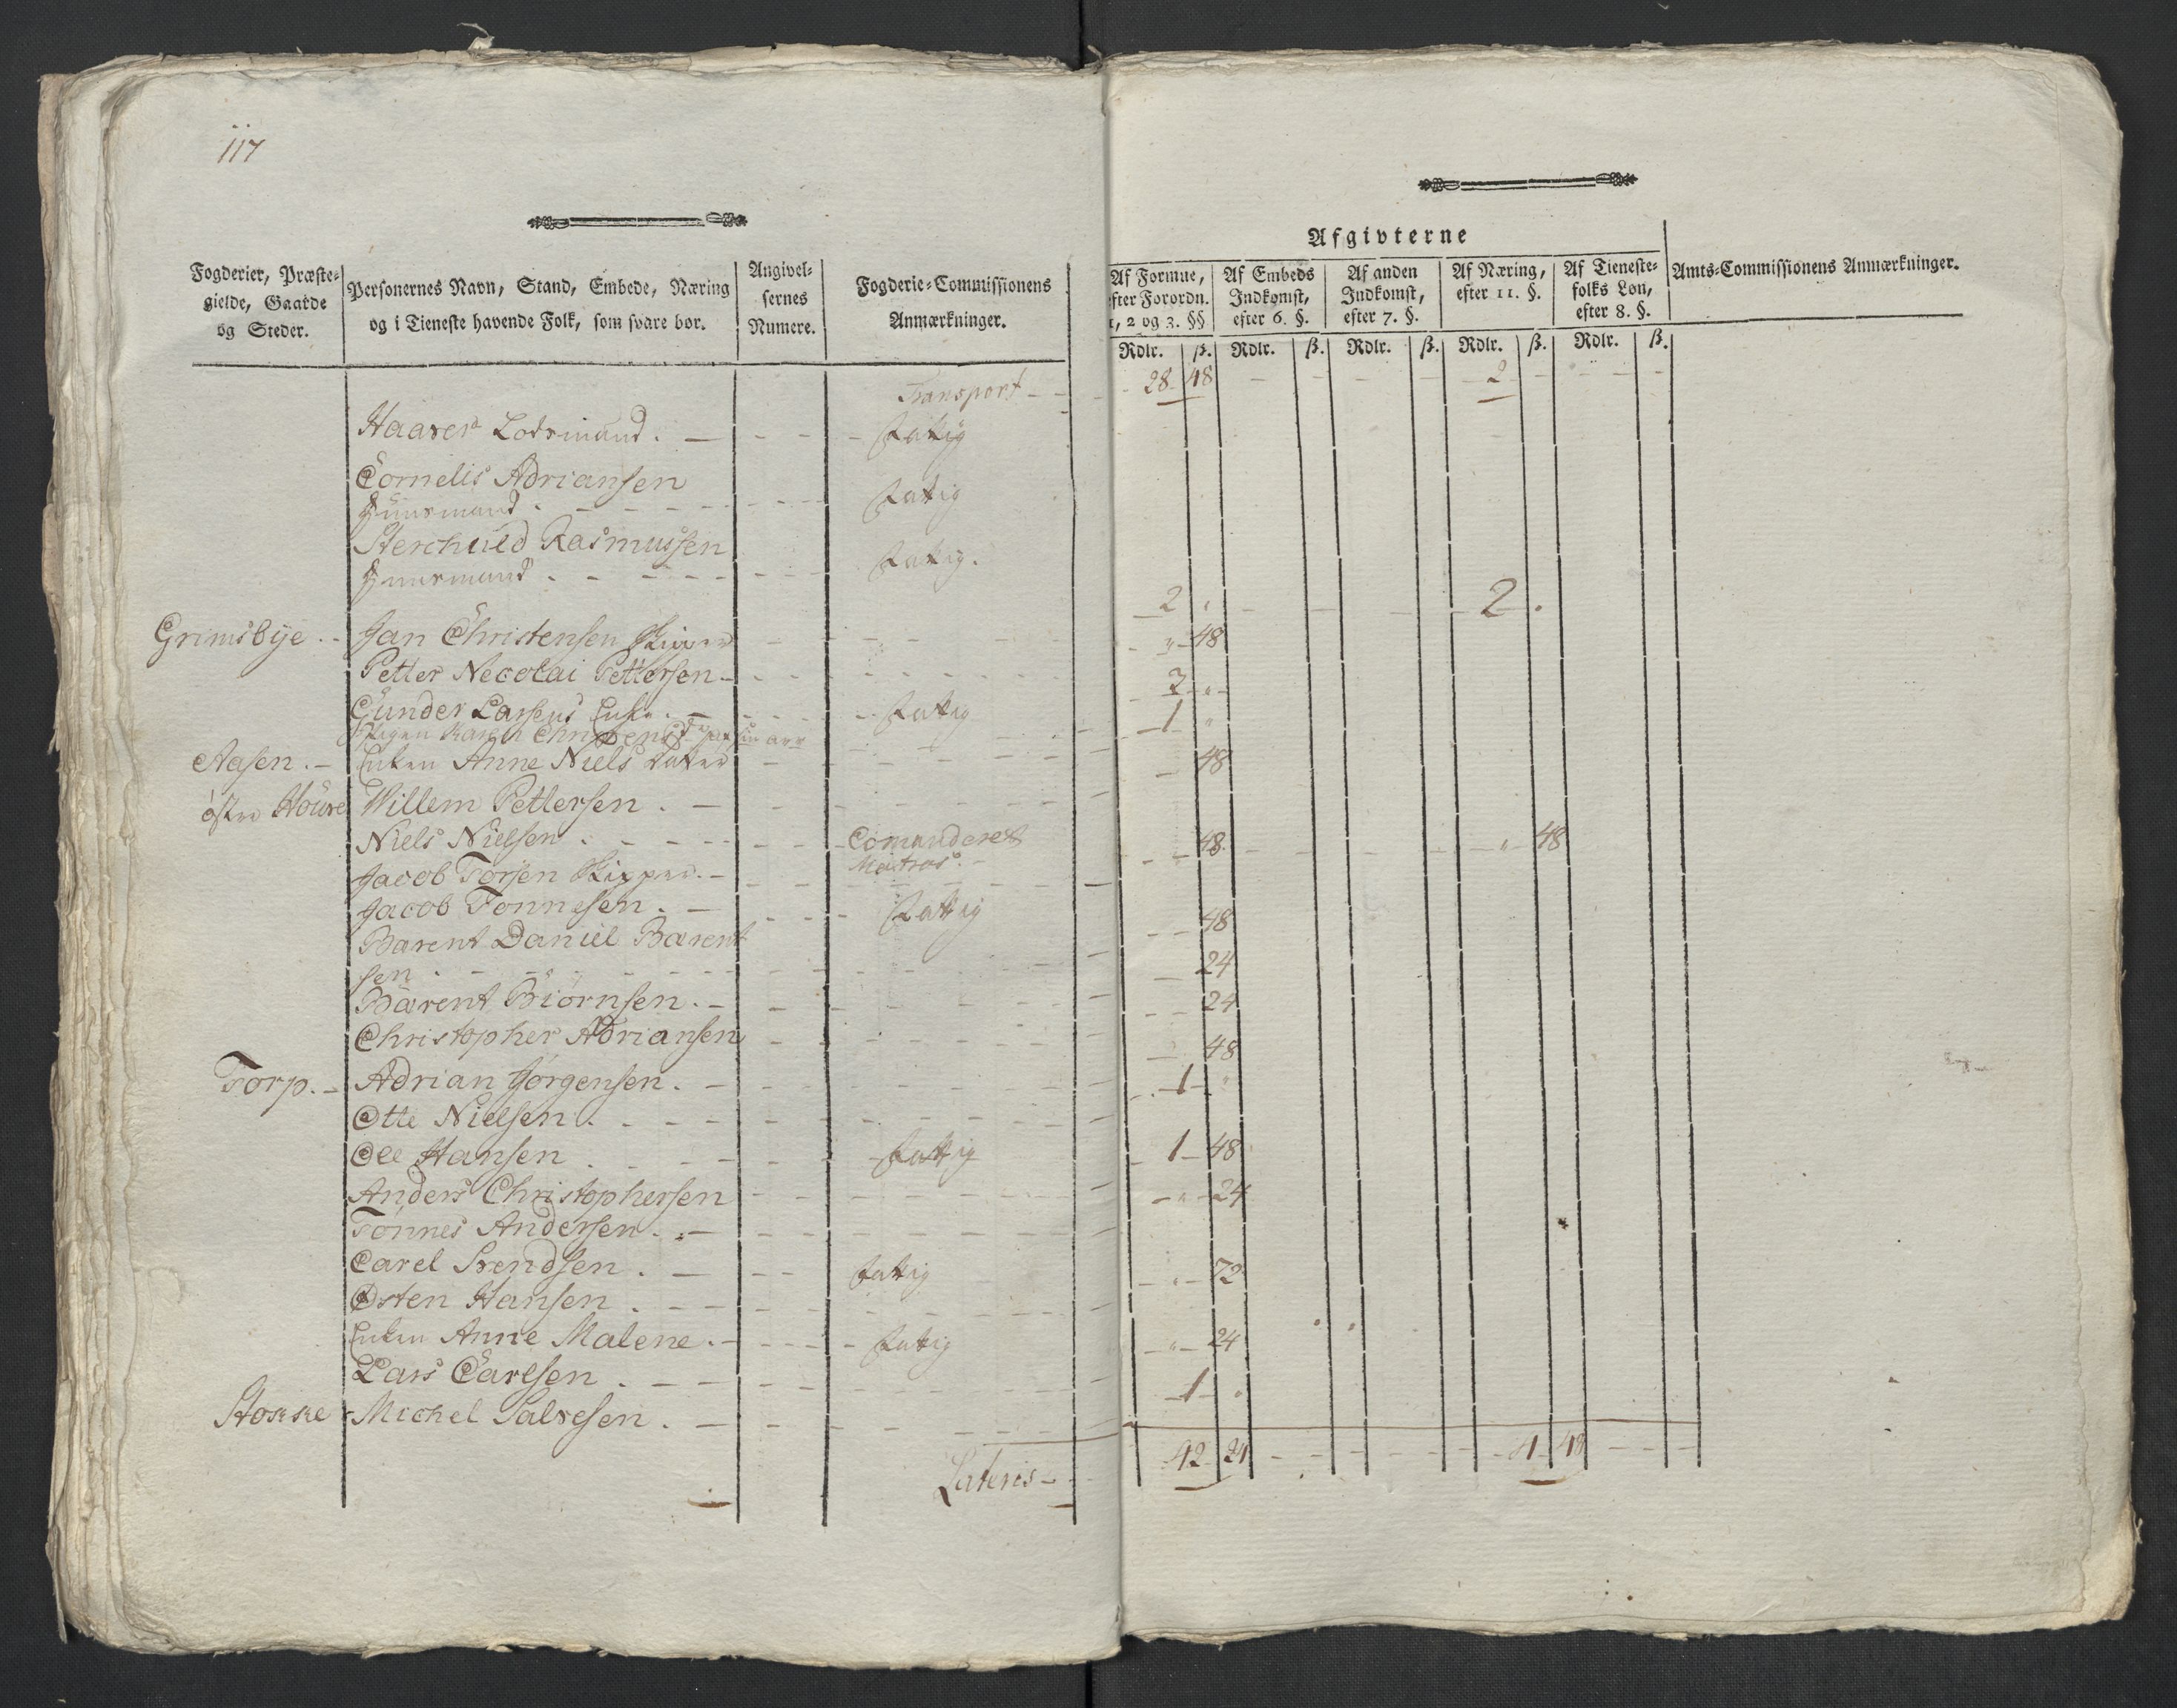 117
Afgivterne
Fogderier, Præste-
gielde, Gaarde
og Steder.
Personernes Navn, Stand, Embede, Næring
og i Tieneste havende Folk, som svare bør.
Angivel-
sernes
Numere.
Fogderie-Commissionens
Anmærkninger.
Af Formue,
efter Forordn.
1, 2 og 3. §§
Af Embeds
Indkomst,
efter 6. §.
Af anden
Indkomst,
efter 7. §.
Af Næring,
efter 11. §.
Af Tieneste-
folks Løn,
efter 8. §.
Amts-Commissionens Anmærkninger.
Rdlr. ß. Rdlr. ß. Rdlr. ß. Rdlr. ß. Rdlr. ß.
Transport - 28 48 - - - - 2 - - -
Haaver Lodsmand. - fattig
Cornelis Adriansen
Huusmand. - fattig
Herchuld Rasmussen
Huusmand. - fattig.
Grimsbye - Jan Christensen Skipper - 2 " - 2 "
Petter Necolai Pettersen - " 48
Gunder Larsens Enke. - fattig
Pigen Karen Christens - 2 "
Aasen. - Enken Anne Niels datter - 1 "
østre Houve Willem Pettersen. - 48
Niels Nielsen. - Comanderet
Matros. -
Jacob Torsen Skipper. - 48 - " 48
Jacob Tonnesen. - fattig
Barent Daniel Barent
sen. - 48
Barent Biörnsen. - 24
Christopher Adriansen - 24
Torp. - Adrian Jörgensen. - 48
Otte Nielsen. - 1 "
Ole Hansen. - fattig
Anders Christophersen - 1 48
Tönnes Andersen. - " 24
Carel Svendsen. - fattig
Osten Hansen. - " 72
Enken Anne Malene. - fattig
Lars Carlsen. - " 24
Michel Salvesen. - 1 "
Lateris - 42 24 - - - - 4 48 - -